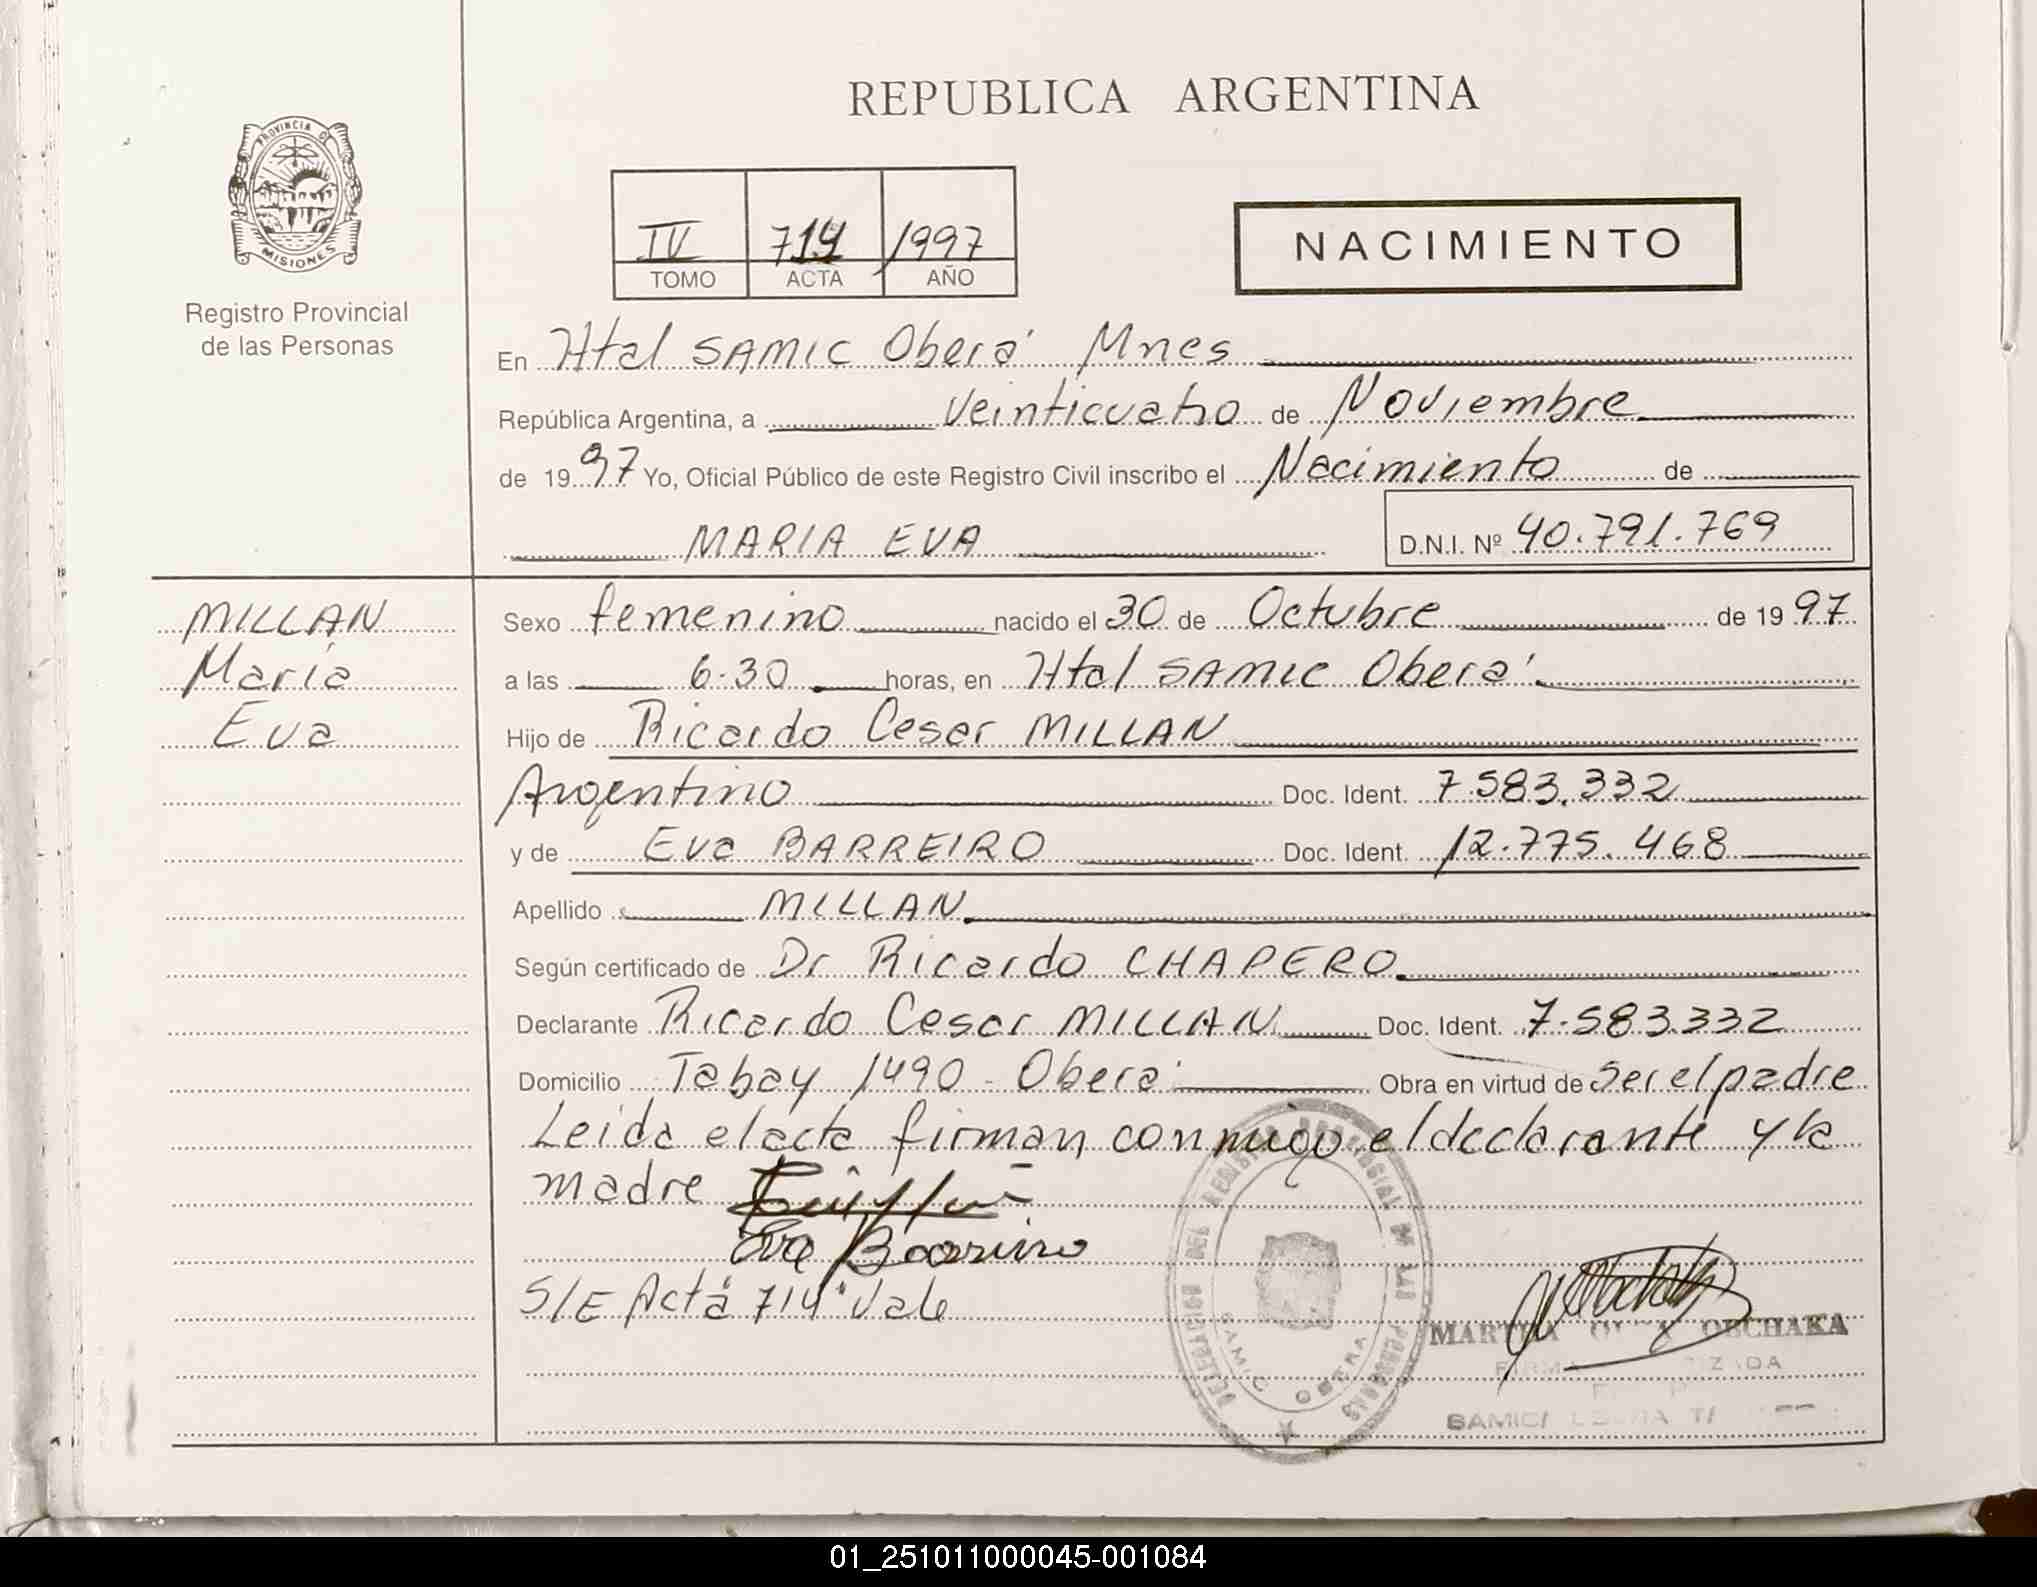 REPUBLICA ARGENTINA
PROVINCIA DE
MISIONES
Registro Provincial
de las Personas
IV 714 1997
TOMO ACTA AÑO
NACIMIENTO
En Htal SAMIC Oberá Mnes
República Argentina, a Veinticuatro de Noviembre
de 1997 Yo, Oficial Público de este Registro Civil inscribo el Nacimiento de
MARIA EVA D.N.I. Nº 40.791.769
MILLAN
Maria
Eva
Sexo femenino nacido el 30 de Octubre de 1997
a las 6.30 horas, en Htal SAMIC Oberá
Hijo de Ricardo Cesar MILLAN
Argentino Doc. Ident. 7.583.332
y de Eva BARREIRO Doc. Ident. 12.775.468
Apellido MILLAN
Según certificado de Dr Ricardo CHAPERO
Declarante Ricardo Cesar MILLAN Doc. Ident. 7.583332
Domicilio Tabay 1490 - Oberá Obra en virtud de ser el padre
Leida el acta firman conmigo el declarante y la
madre
Eva Barreiro
S/E Acta "714" Vale
DELEGACION DEL REGISTRO PROVINCIAL DE LAS PERSONAS
SAMIC OBERA
MARTHA OBCHAKA
01_251011000045-001084